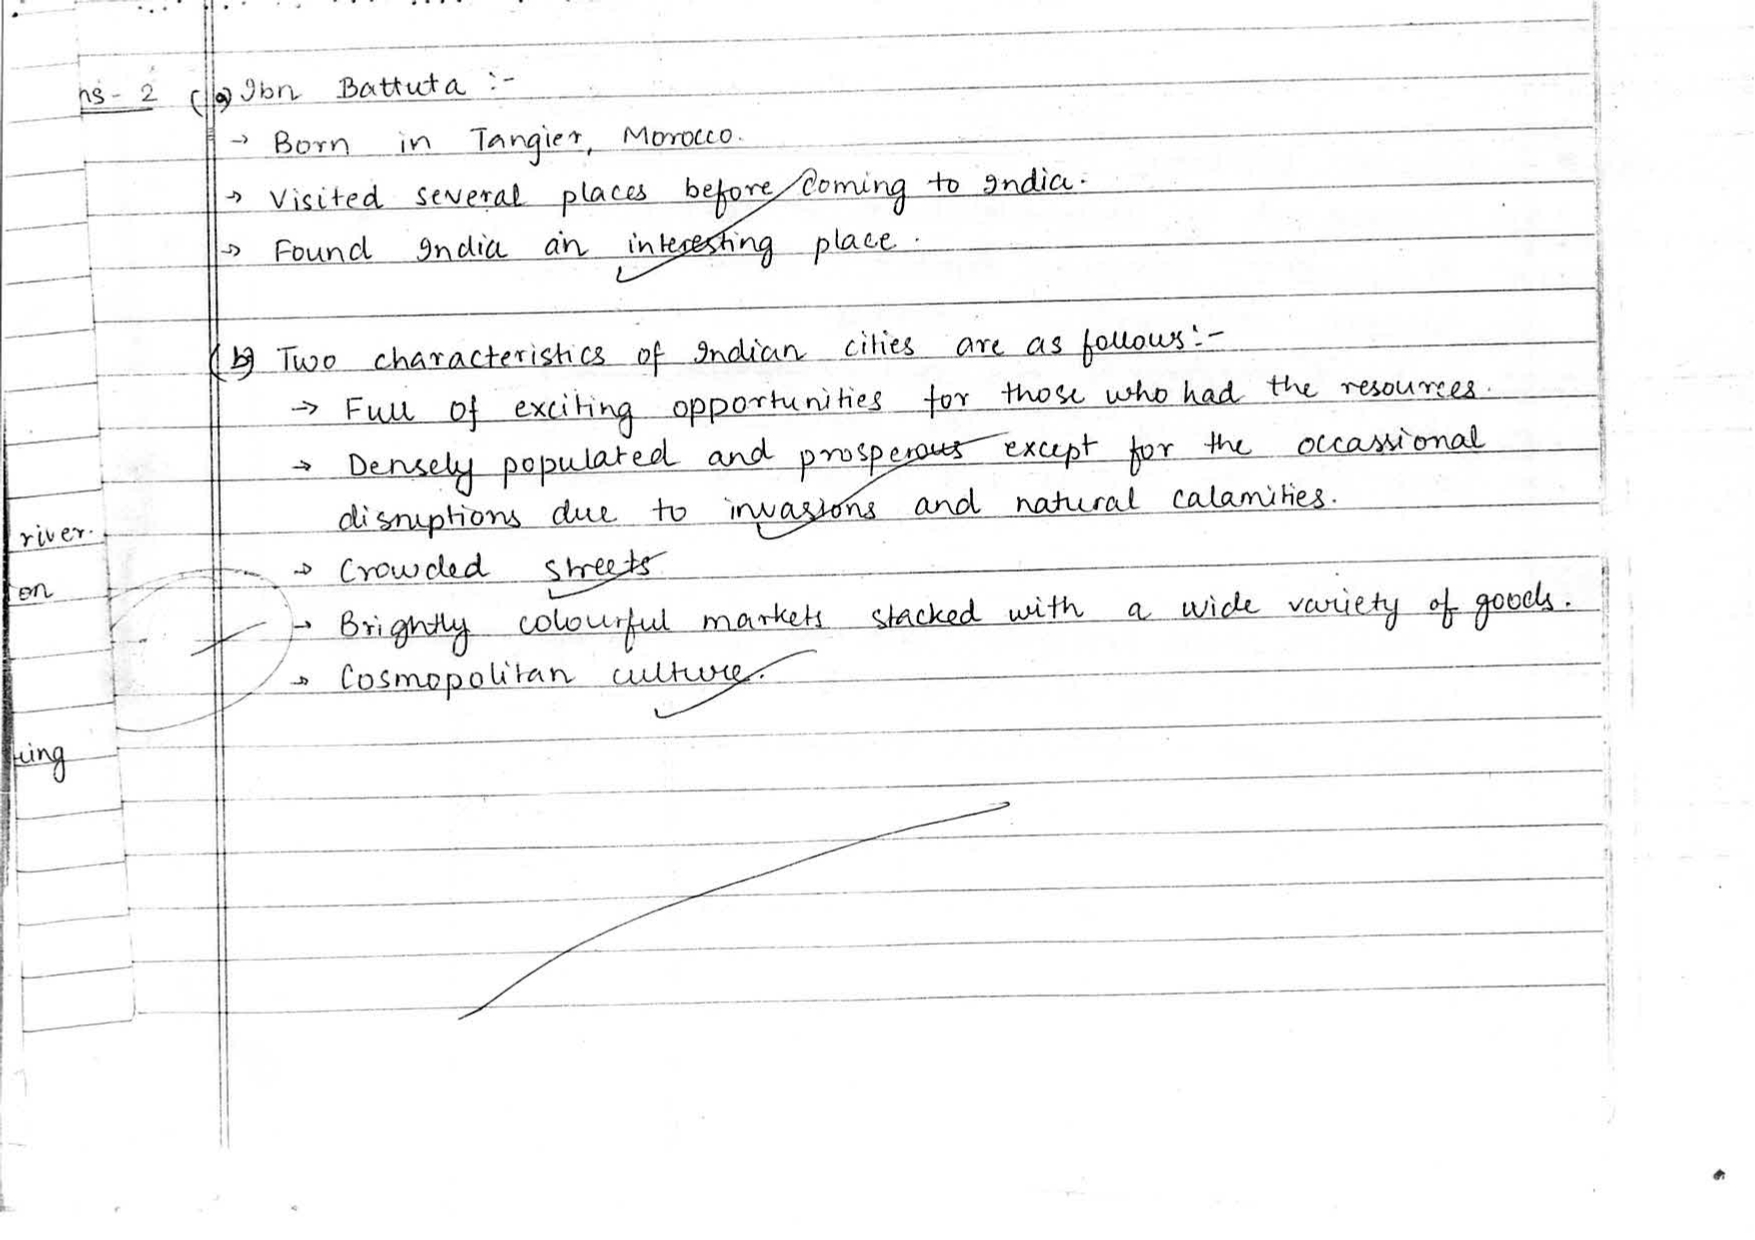 ns- 2 (a) Ibn Battuta :-
→ Born in Tangier, Morocco.
→ Visited several places before coming to India.
→ Found India an interesting place.
(b) Two characteristics of Indian cities are as follows:-
→ Full of exciting opportunities for those who had the resources.
→ Densely populated and prosperous except for the occassional
disruptions due to invasions and natural calamities.
→ Crowded streets
→ Brightly colourful markets stacked with a wide variety of goods.
→ Cosmopolitan culture.
river.
on